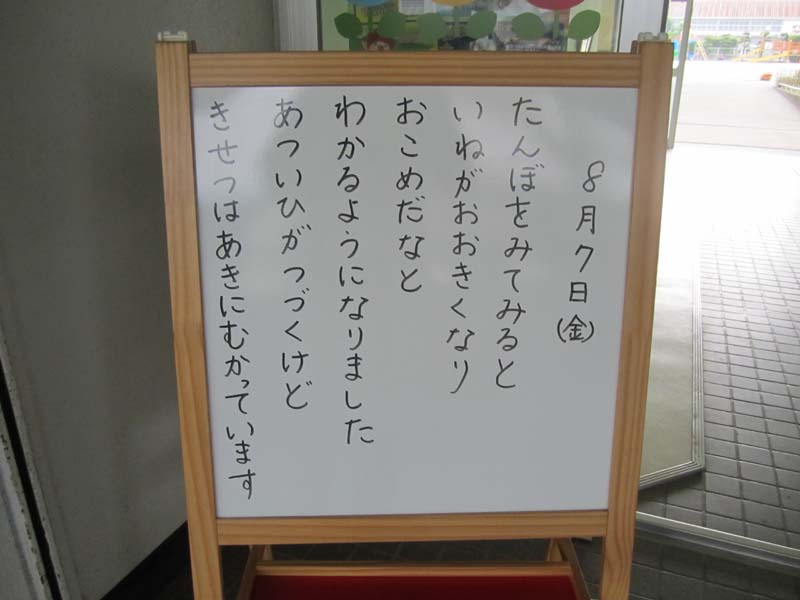 8月7日(金)
たんぼをみてみると
いねがおおきくなり
おこめだなと
わかるようになりました
あついひがつづくけど
きせつはあきにむかっています